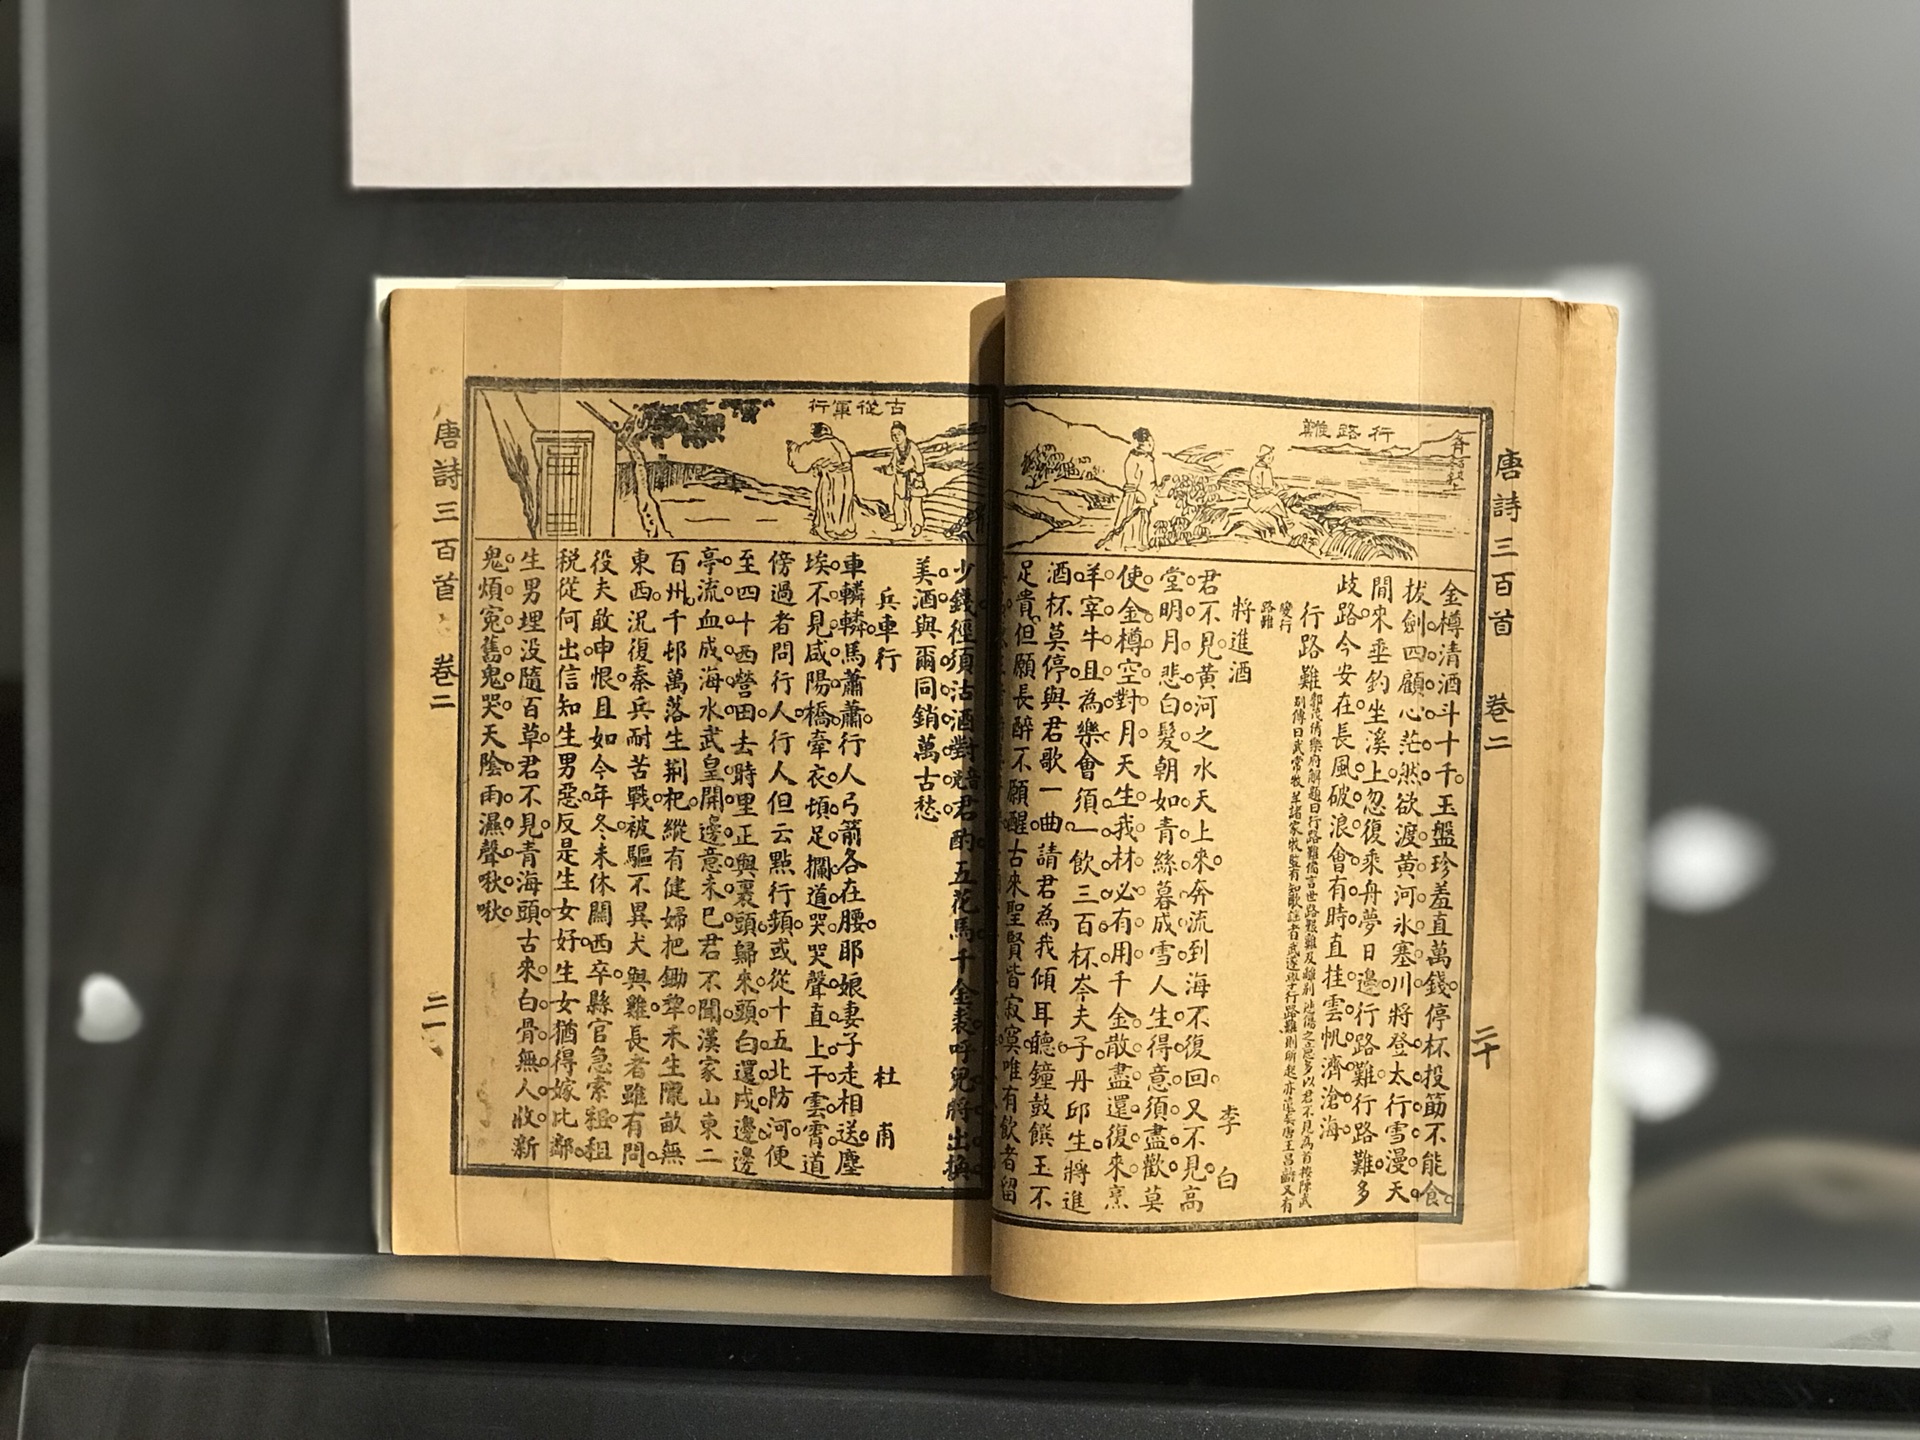 唐詩三百首 卷二 二十
行路難
金樽清酒斗十千玉盤珍羞直萬錢停杯投筯不能食
拔劍四顧心茫然欲渡黃河冰塞川將登太行雪漫天
閒來垂釣坐溪上忽復乘舟夢日邊行路難行路難多
歧路今安在長風破浪會有時直挂雲帆濟滄海
行路難
將進酒 李白
君不見黃河之水天上來奔流到海不復回又不見高
堂明月悲白髮朝如青絲暮成雪人生得意須盡歡莫
使金樽空對月天生我材必有用千金散盡還復來烹
羊宰牛且為樂會須一飲三百杯岑夫子丹邱生將進
酒杯莫停與君歌一曲請君為我傾耳聽鐘鼓饌玉不
足貴但願長醉不願醒古來聖賢皆寂寞唯有飲者留
古從軍行
少錢徑須沽酒對君酌五花馬千金裘呼兒將出換
美酒與爾同銷萬古愁
兵車行 杜甫
車轔轔馬蕭蕭行人弓箭各在腰耶娘妻子走相送塵
埃不見咸陽橋牽衣頓足攔道哭哭聲直上干雲霄道
傍過者問行人行人但云點行頻或從十五北防河便
至四十西營田去時里正與裹頭歸來頭白還戍邊邊
亭流血成海水武皇開邊意未已君不聞漢家山東二
百州千邨萬落生荆杞縱有健婦把鋤犂禾生隴畝無
東西況復秦兵耐苦戰被驅不異犬與雞長者雖有問
役夫敢申恨且如今年冬未休關西卒縣官急索租租
税從何出信知生男惡反是生女好生女猶得嫁比鄰
生男埋没隨百草君不見青海頭古來白骨無人收新
鬼煩冤舊鬼哭天陰雨濕聲啾啾
唐詩三百首 卷二 二一